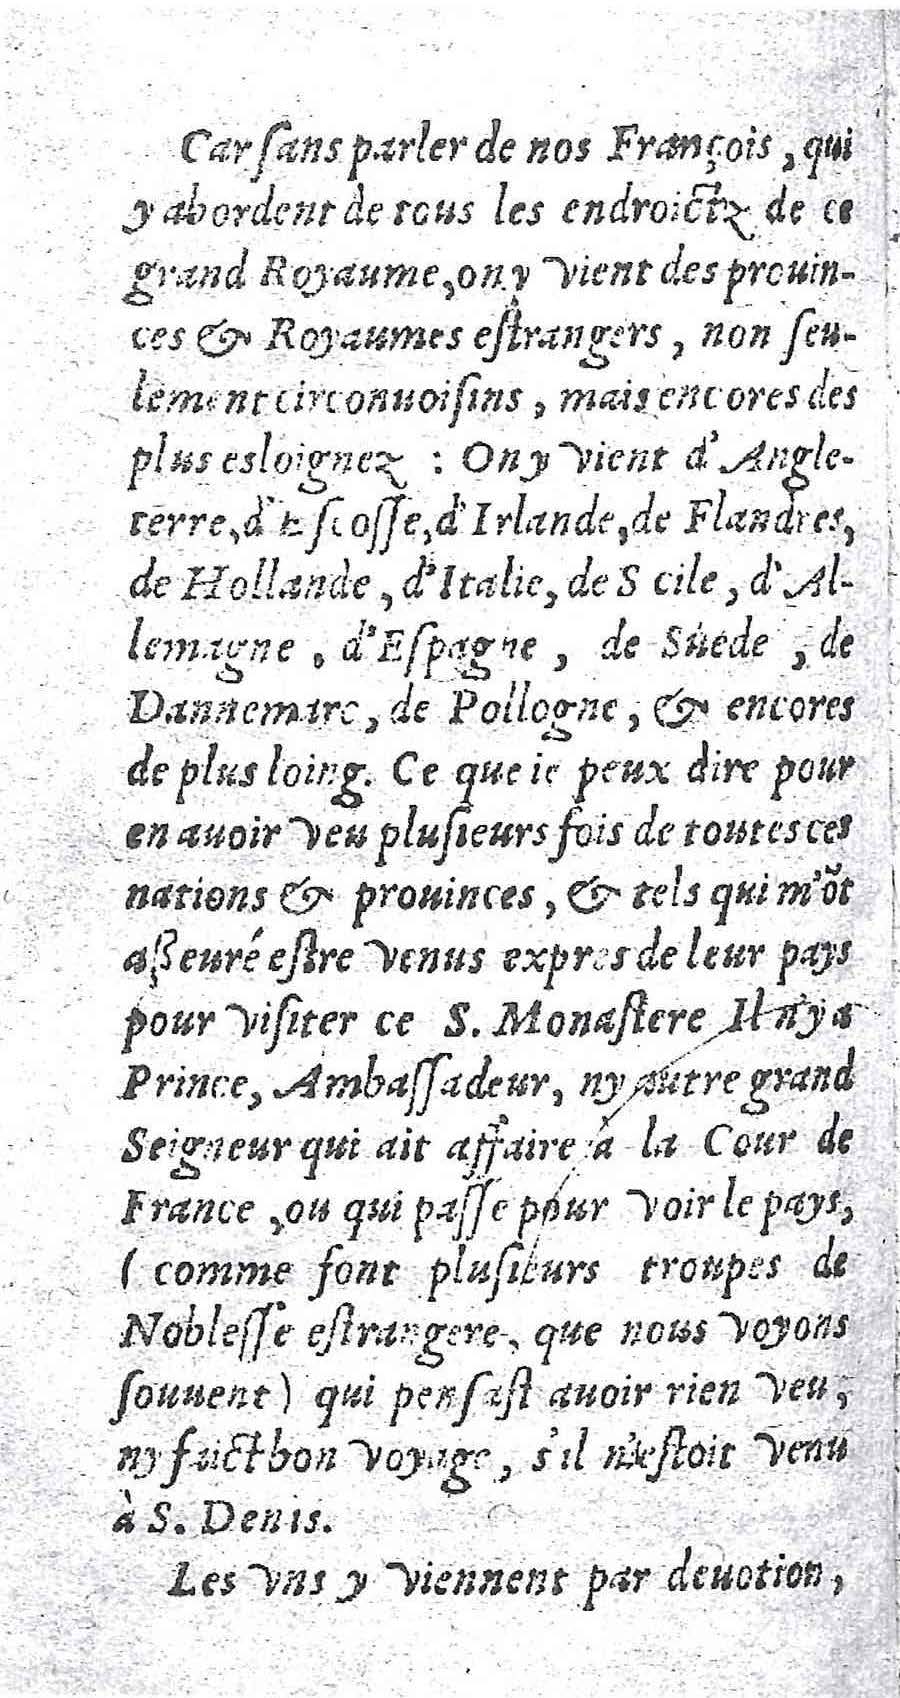 Car ſans parler de nos François, qui
y abordent de tous les endroictz de ce
grand Royaume, on y vient des prouin-
ces & Royaumes eſtrangers, non ſeu-
lement circonuoiſins, mais encores des
plus esloignez : On y vient d'Angle-
terre, d'Eſcoſſe, d'Irlande, de Flandres,
de Hollande, d'Italie, de S cile, d'Al-
lemagne, d'Eſpagne, de Suéde, de
Dannemarc, de Pollogne, & encores
de plus loing. Ce que ie peux dire pour
en auoir veu pluſieurs fois de toutes ces
nations & prouinces, & tels qui m'õt
aſſeuré eſtre venus expres de leur pays
pour viſiter ce S. Monaſtere Il n'y a
Prince, Ambaſſadeur, ny autre grand
Seigneur qui ait affaire à la Cour de
France, ou qui paſſe pour voir le pays,
( comme font pluſieurs troupes de
Nobleſſe eſtrangere, que nous voyons
ſouuent) qui penſaſt auoir rien veu,
ny faict bon voyage, s'il n'eſtoit venu
à S. Denis.
Les vns y viennent par deuotion,